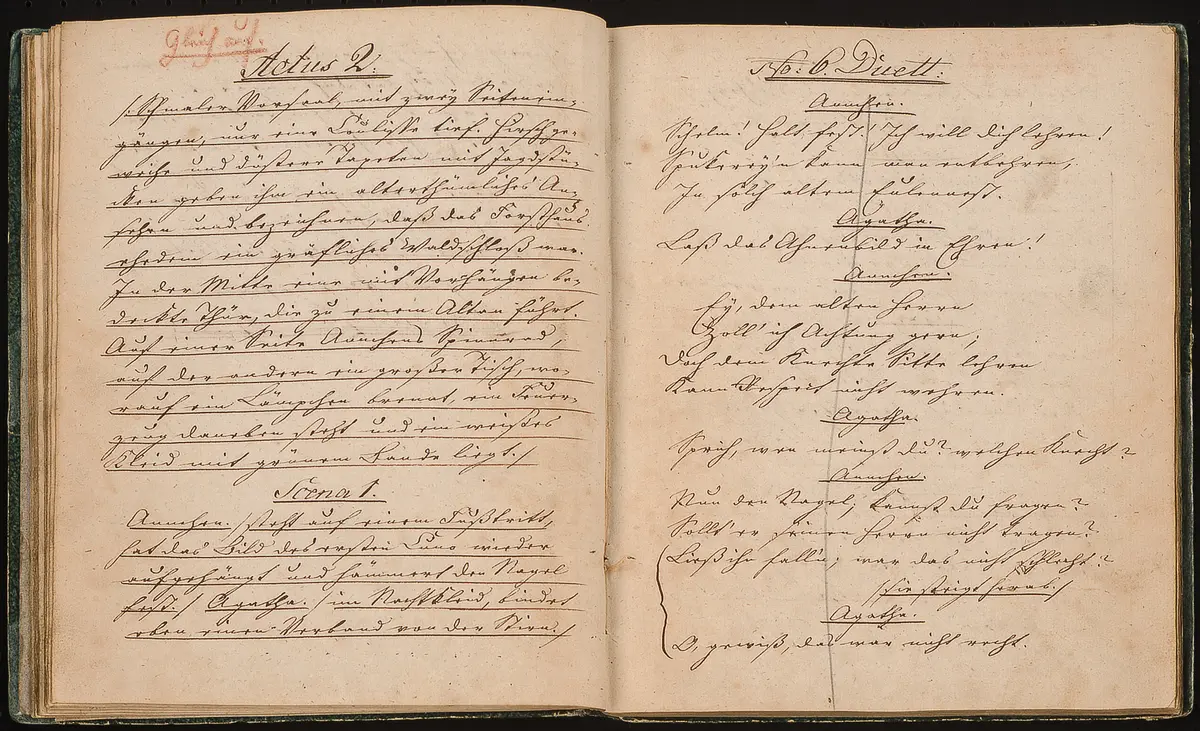 Gleich auf.
Actus 2.
/: Schmaler Vorsaal, mit zwey Seitenein-
gängen, nur eine Coulisse tief. Hirschge-
weihe und düstere Tapeten mit Jagdstü-
cken geben ihm ein alterthümliches An-
sehen und bezeichnen, daß das Forsthaus
ehedem ein gräfliches Waldschloß war.
In der Mitte eine mit Vorhängen be-
deckte Thür, die zu einem Altan führt.
Auf einer Seite Annchens Spinnrad,
auf der andern ein großer Tisch, wo-
rauf ein Lämpchen brennt, ein Feuer-
zeug daneben steht und ein weißes
Kleid mit grünem Bande liegt. /
Scena 1.
Annchen. / steht auf einem Fußtritt,
hat das Bild des ersten Cuno wieder
aufgehängt und hämmert den Nagel
fest. / Agatha. / im Nachtkleid, bindet
eben einen Verband von der Stirn. /
No: 6. Duett.
Annchen.
Schelm! Halt fest! Ich will dich lehren!
Spukerey'n kann man entbehren,
In solch altem Eulennest.
Agatha.
Laß das Ahnenbild in Ehren!
Annchen.
Ey, dem alten Herrn
Zoll' ich Achtung gern;
Doch dem Knechte Sitte lehren
Kann Respect nicht wehren.
Agatha.
Sprich, wen meinst du? welchen Knecht?
Annchen.
Nun den Nagel, kannst du fragen?
Sollt' er seinen Herrn nicht tragen?
Ließ ihn fall'n; war das nicht schlecht?
/ sie steigt herab. /
Agatha.
O, gewiß, das war nicht recht.